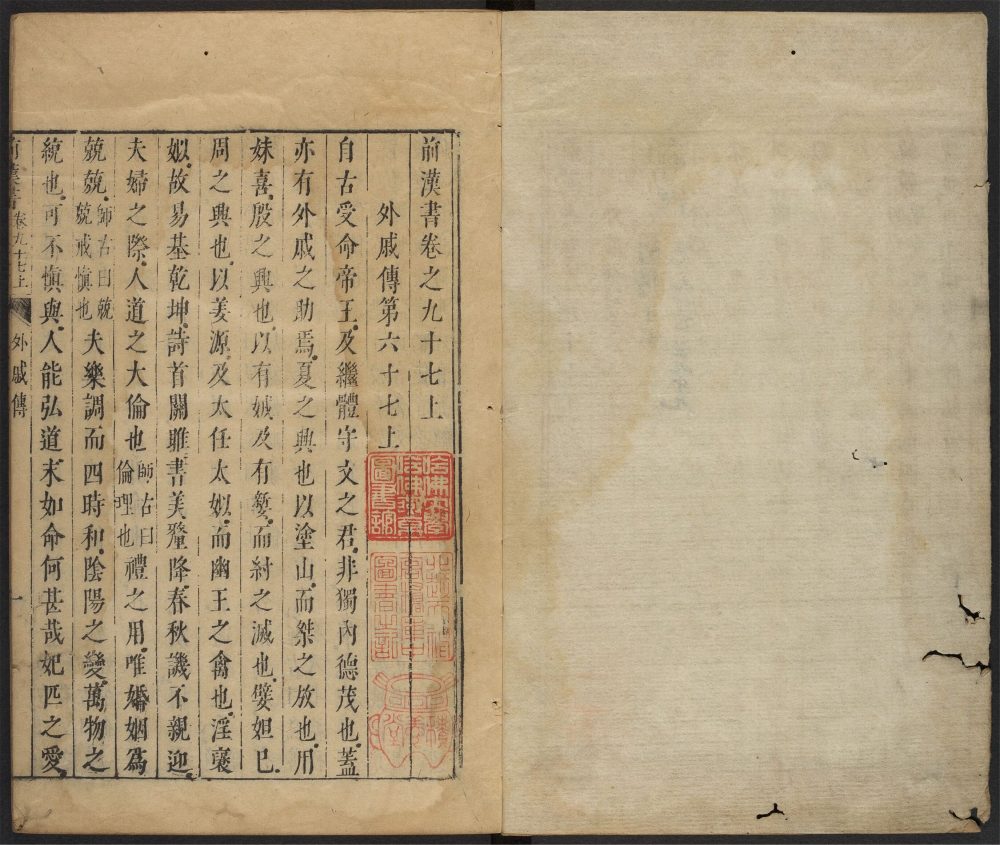 前漢書卷之九十七上
外戚傳第六十七上
哈佛大學
哈佛燕京
圖書館
自古受命帝王、及繼體守文之君、非獨內德茂也、蓋
亦有外戚之助焉、夏之興也、以塗山、而桀之放也、用
妹喜、殷之興也、以有娀及有㜪、而紂之滅也、嬖妲己、
周之興也、以姜源、及太任太姒、而幽王之禽也、淫襃
姒、故易基乾坤、詩首關雎、書美釐降、春秋譏不親迎、
夫婦之際、人道之大倫也師古曰倫理也禮之用、唯婚姻爲
兢兢、師古曰兢兢戒愼也夫樂調而四時和、陰陽之變、萬物之
統也、可不愼與、人能弘道、末如命何、甚哉妃匹之愛、
前漢書 卷九十七上 外戚傳 一